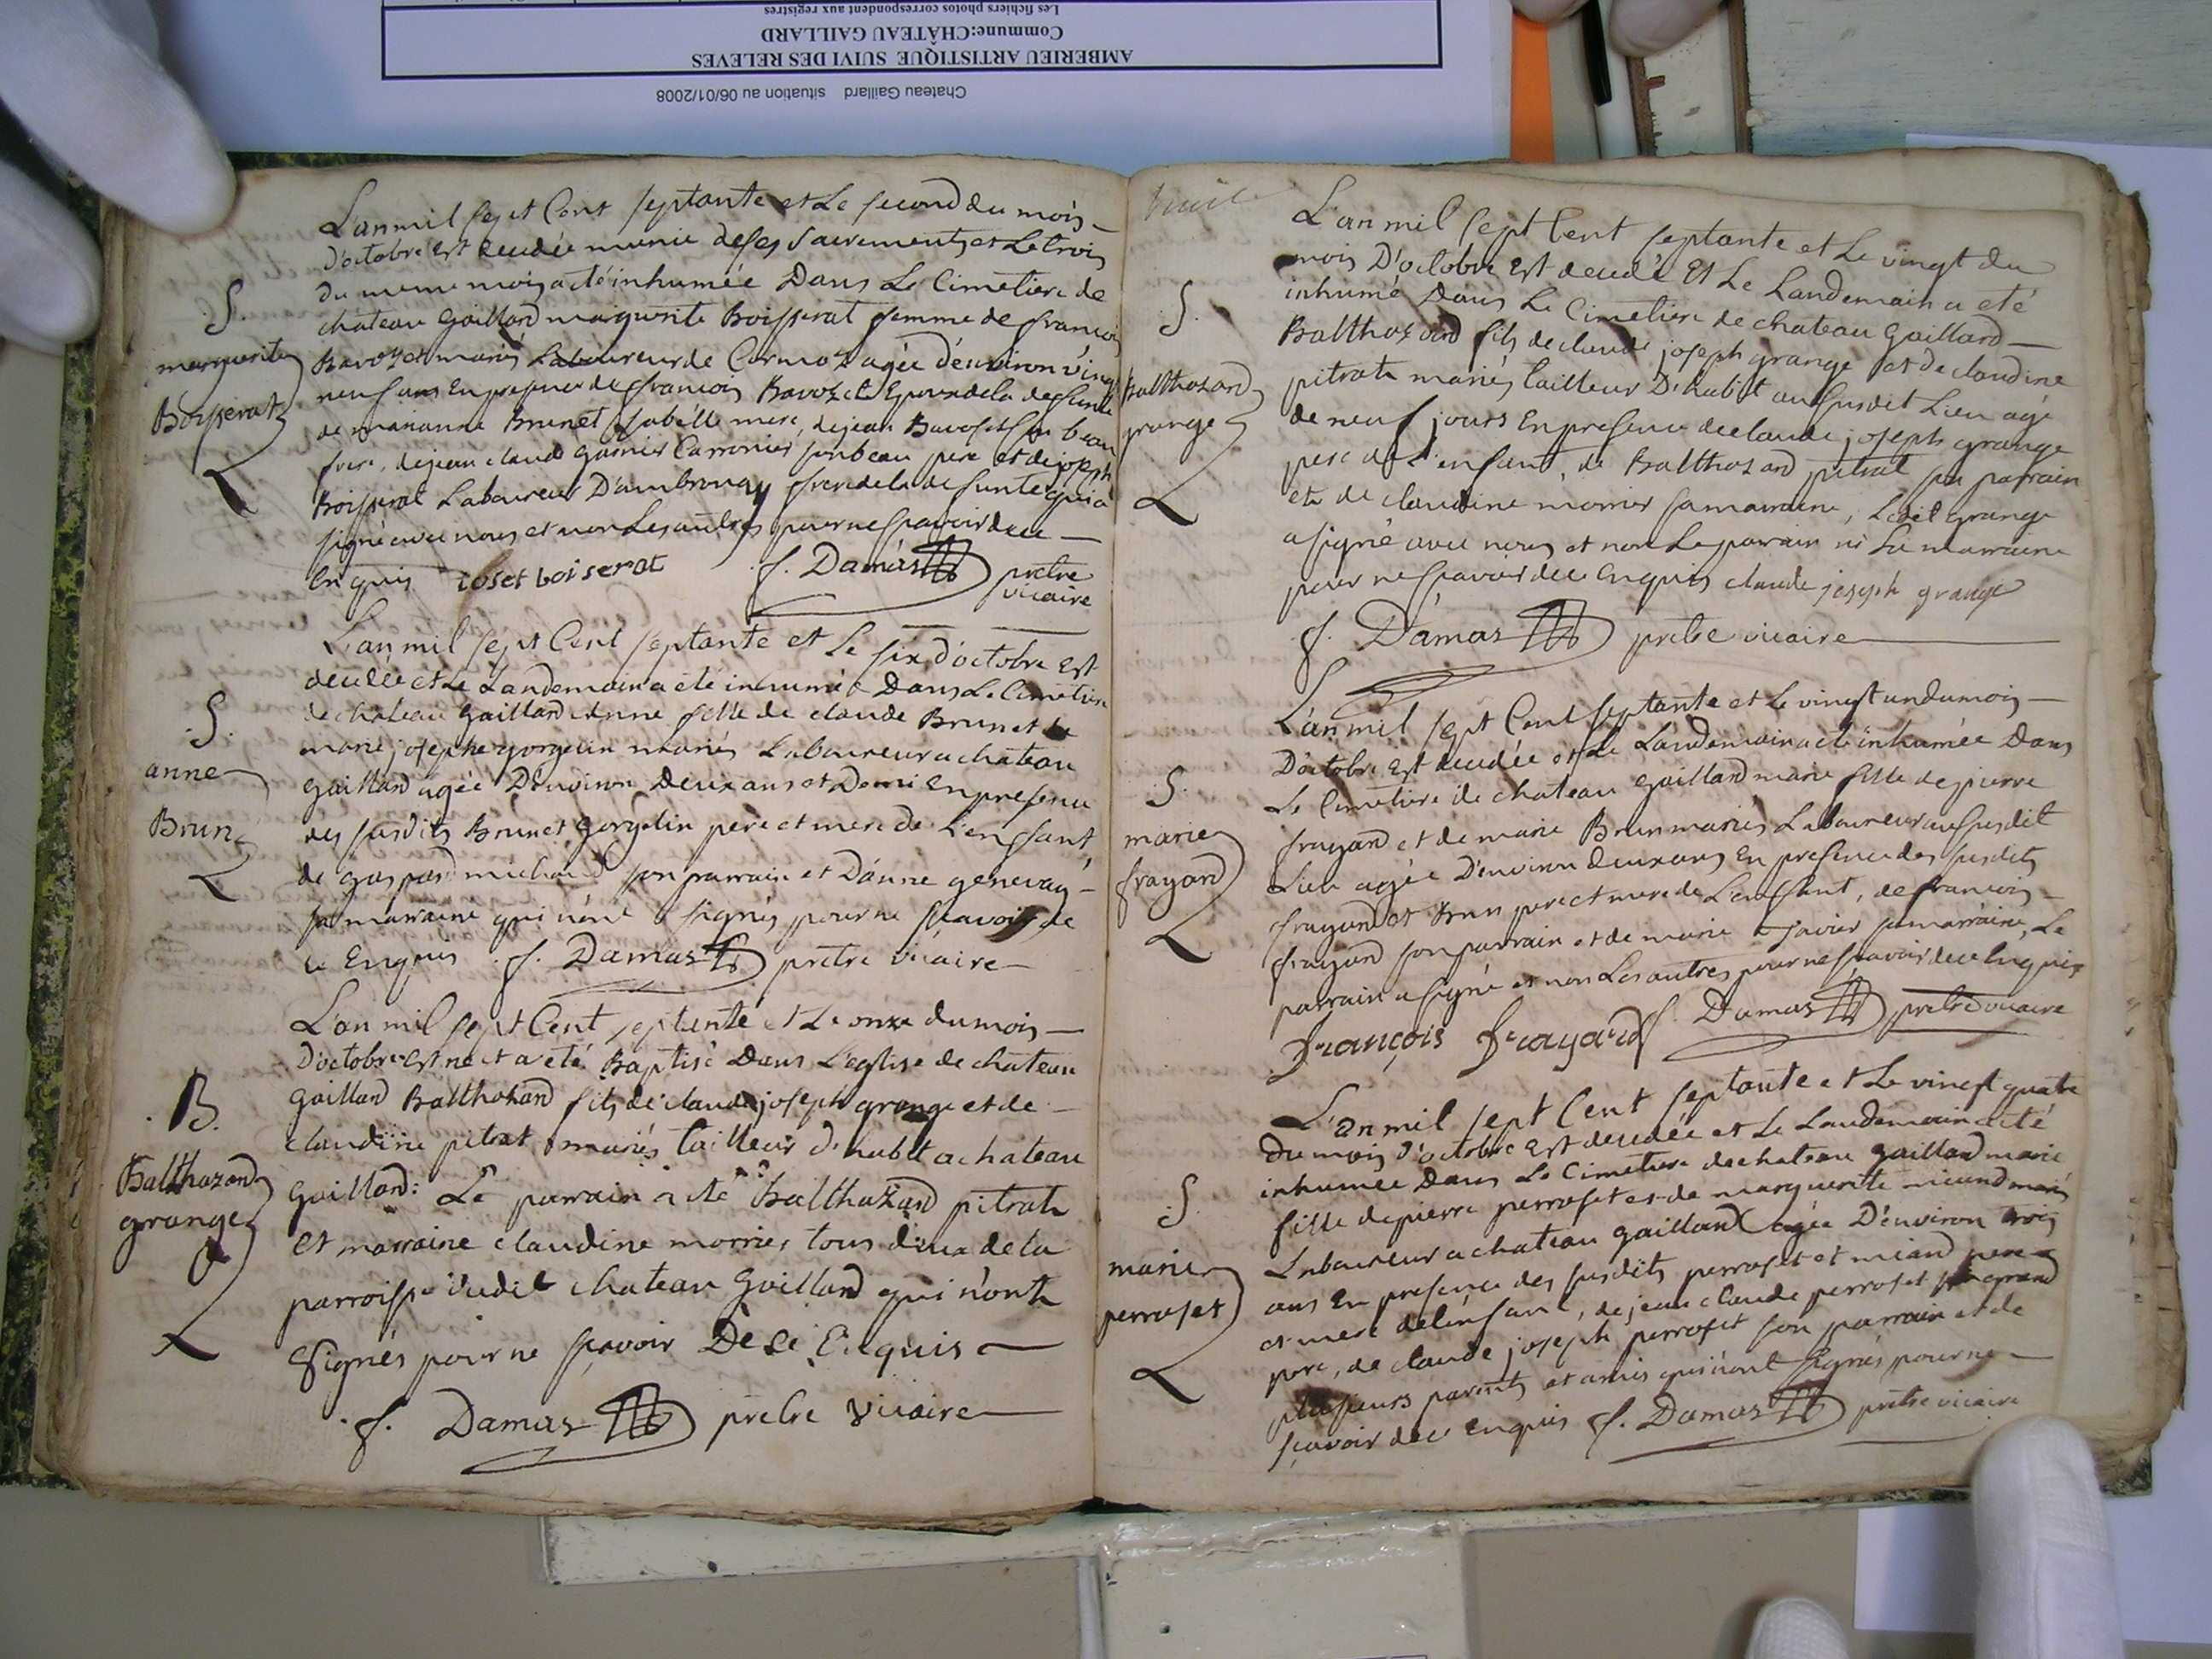 Chateau Gaillard situation au 06/01/2008
AMBERIEU ARTISTIQUE SUIVI DES RELEVES
Commune:CHÂTEAU GAILLARD
Les fichiers photos correspondent aux registres
S.
marguerite
Boisserat
L'an mil sept Cent septante et Le second du mois
D'octobre est decedée munie de ses Sacrements et Le trois
du meme mois a été inhumée Dans Le Cimetiere de
chateau Gaillard marguerite Boisserat femme de francois
Bavozet mariés Laboureur de Cormoz agée d'environ vingt
neuf ans En presence de francois Bavozet Epoux de la defunte
de marianne Brunet sa belle mere, de jean Bavoset son beau
frere, de jean claude garnier Carronier son beau pere et de joseph
Boisserat Laboureur D'ambronay frere de la defunte qui a
signé avec nous et non Les autres pour ne sçavoir de ce
Enquis ioset boiserat f. Damas prêtre
vicaire
S.
anne
Brun
L'an mil sept Cent septante et Le six d'octobre Est
decedée et Le Landemain a été inhumée Dans Le Cimetiere
de chateau Gaillard Anne fille de claude Brunet et
marie josephe gorgelin mariés Laboureur a chateau
Gaillard agée D'environ Deux ans et Demi En presence
des susdits Brunet Gorgelin pere et mere de L'enfant
de gaspard michaud son parrain et D'anne genevay
sa marraine qui n'ont signés pour ne sçavoir de
ce Enquis f. Damas prêtre vicaire
B.
Balthazard
grange
L'an mil sept Cent septante et Le onze du mois
D'octobre Est né et a été Baptisé Dans L'eglise de chateau
Gaillard Balthazard fils de claude joseph grange et de
claudine pitrat mariés tailleur d'habit a chateau
Gaillard: Le parrain a été Balthazard pitrat
et marraine claudine morrier tous deux de la
parroisse dudit chateau Gaillard qui n'ont
signés pour ne sçavoir De ce Enquis
f. Damas prêtre vicaire
S.
Balthazard
grange
L'an mil sept Cent septante et Le vingt du
mois D'octobre Est decedé Et Le Landemain a eté
inhumé Dans Le Cimetiere de chateau Gaillard
Balthazard fils de claude joseph grange et de claudine
pitrat mariés tailleur D'habit au susdit Lieu agé
de neuf jours En presence de claude joseph grange
pere de L'enfant, de Balthazard pitrat son parrain
et de claudine morrier sa marraine, Ledit grange
a signé avec nous et non Le parrain ni La marraine
pour ne sçavoir de ce Enquis claude joseph grange
f. Damas prêtre vicaire
S.
marie
frayard
L'an mil sept Cent septante et Le vingt un du mois
D'octobre Est decedée et Le Landemain a été inhumée Dans
Le Cimetiere de chateau Gaillard marie fille de pierre
frayard et de marie Brun mariés Laboureur au susdit
Lieu agée D'environ deux ans En presence des susdits
frayard et Brun pere et mere de L'enfant, de francois
frayard son parrain et de marie javier sa marraine, Le
parrain a signé et non Les autres pour ne sçavoir de ce Enquis
François Frayard f. Damas prêtre vicaire
S.
marie
perroset
L'an mil sept Cent septante et Le vingt quatre
Du mois d'octobre Est decedée et Le Landemain a été
inhumée Dans Le Cimetiere de chateau Gaillard marie
fille de pierre perroset et de marguerite miand mariés
Laboureur a chateau Gaillard agée D'environ trois
ans En presence des susdits perroset et miand pere
et mere de L'enfant, de jean claude perroset son grand
pere, de claude joseph perroset son parrain et de
plusieurs parents et amis qui n'ont signés pour ne
sçavoir de ce Enquis f. Damas prêtre vicaire